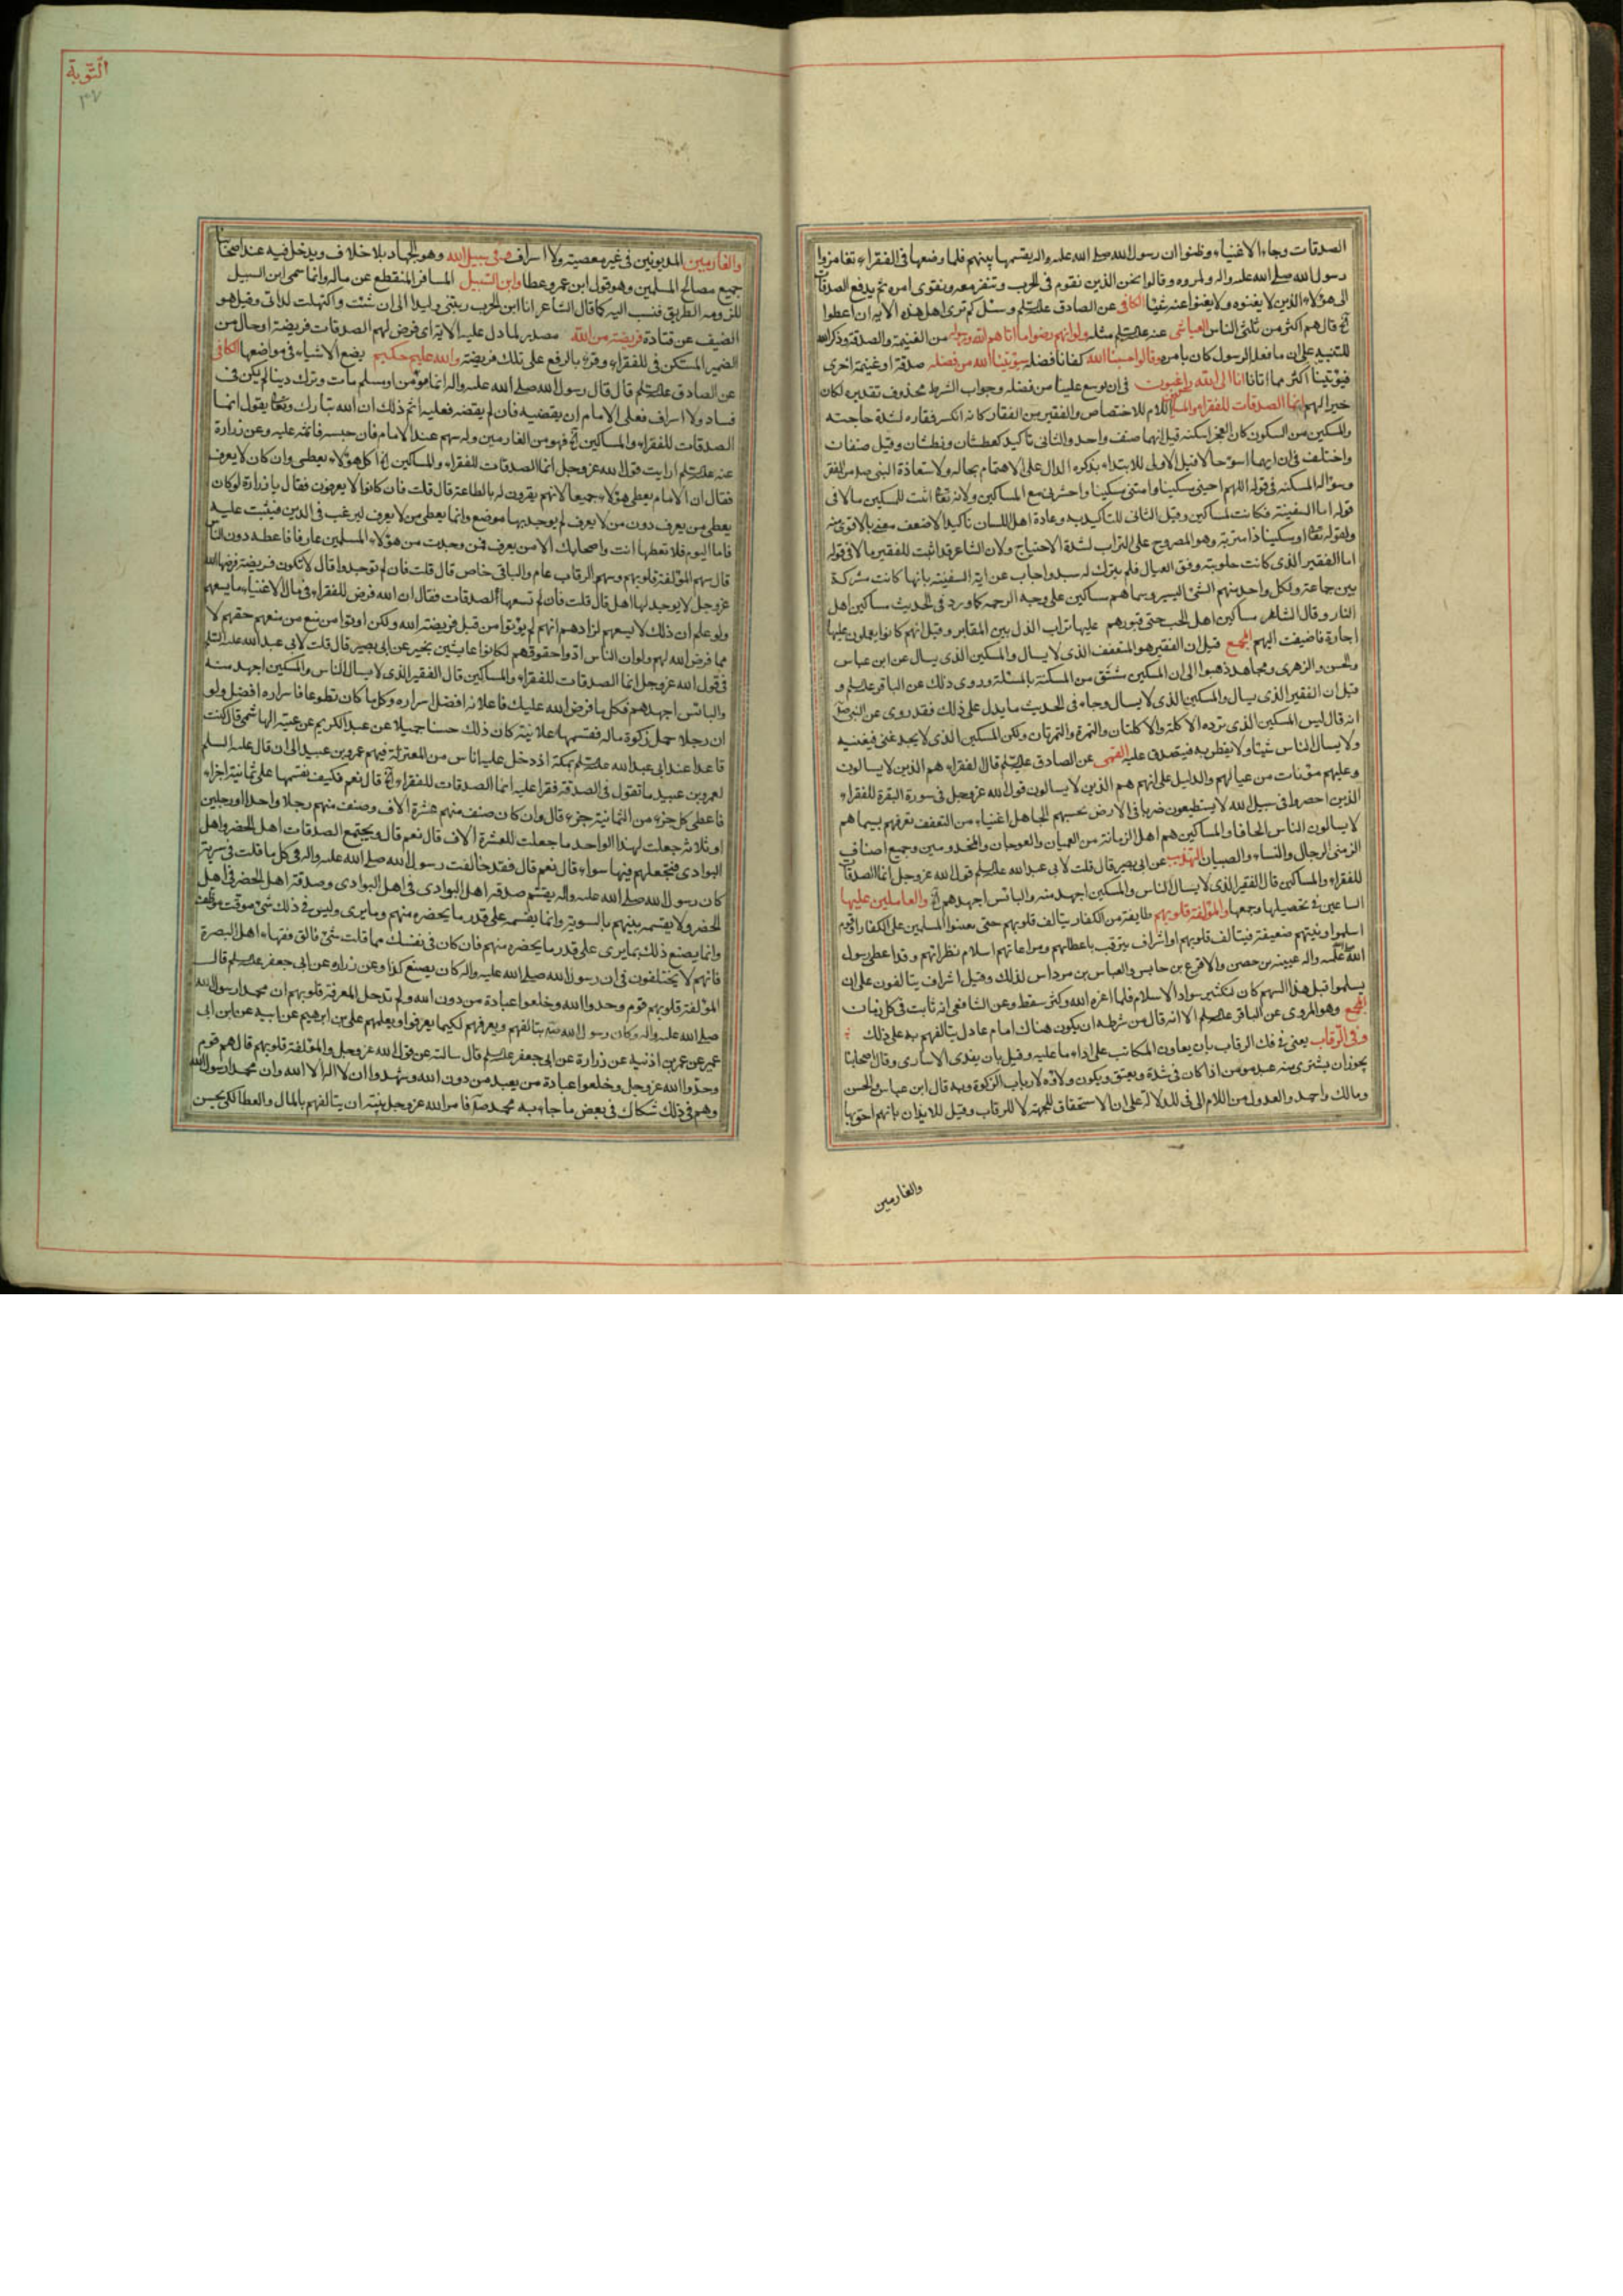 الصدقات وجاء الاغنياء وظنوا ان رسول الله صلى الله عليه واله يقسمها بينهم فلما وضعها فى الفقراء تغامزوا
رسول الله صلى الله عليه واله ولمزوه وقالوا نحن الذين نقوم فى الحرب وننفر معه ونقوى امره ثم يدفع الصدقات
الى هؤلاء الذين لا يغنونه ولا يغنوا عنه شيئا الكافى عن الصادق عليه السلم وسئل كم ترى اهل هذه الاية ان اعطوا
قال هم اكثر من ثلثى الناس العياشى عنه عليه السلم مثله ولو انهم رضوا ما اتاهم الله ورسوله من الغنيمة والصدقة وذكر الله
للتنبيه على ان ما فعله الرسول كان بامره وقالوا حسبنا الله كفانا فضله سيؤتينا الله من فضله صدقة او غنيمة اخرى
فيؤتينا اكثر مما اتانا انا الى الله راغبون فى ان يوسع علينا من فضله وجواب الشرط محذوف تقديره لكان
خيرا لهم انما الصدقات للفقراء والمساكين اللام للاختصاص والفقير من الفقار كانه انكسر فقاره لشدة حاجته
والمسكين من السكون كان العجز اسكنه قيل انهما صنف واحد والثانى تاكيد كعطشان ونطشان وقيل صنفان
واختلف فى ان ايهما اسوء حالا فقيل الاولى للابتداء بذكره الدال على الاهتمام بحاله ولاستعاذة النبى من الفقر
وسؤاله المسكنة فى قوله اللهم احينى مسكينا وامتنى مسكينا واحشرنى مع المساكين ولانه تعالى اثبت للمسكين مالا فى
قوله اما السفينة فكانت لمساكين وقيل الثانى للتاكيد به وعادة اهل اللسان تاكيد الاضعف معنى بالاقوى منه
ولقوله تعالى او مسكينا ذا متربة وهو المطروح على التراب لشدة الاحتياج ولان الشاعر قد اثبت للفقير مالا فى قوله
اما الفقير الذى كانت حلوبته وفق العيال فلم يترك له سبد واجاب عن اية السفينة بانها كانت مشتركة
بين جماعة ولكل واحد منهم الشئ اليسير وسماهم مساكين على وجه الرحمة كما ورد فى الحديث مساكين اهل
النار وقال الشاعر مساكين اهل الحب حتى قبورهم عليها تراب الذل بين المقابر وقيل انهم كانوا يعملون عليها
اجارة فاضيفت اليهم المجمع قيل ان الفقير هو المتعفف الذى لا يسال والمسكين الذى يسال عن ابن عباس
والحسن والزهرى ومجاهد ذهبوا الى ان المسكين مشتق من المسكنة بالمسئلة وروى ذلك عن الباقر عليه السلم و
قيل ان الفقير الذى يسال والمسكين الذى لا يسال وجاء فى الحديث ما يدل على ذلك فقد روى عن النبى
انه قال ليس المسكين الذى ترده الاكلة والاكلتان والتمرة والتمرتان ولكن المسكين الذى لا يجد غنى فيغنيه
ولا يسال الناس شيئا ولا يفطن به فيتصدق عليه القمى عن الصادق عليه السلم قال الفقراء هم الذين لا يسالون
وعليهم مؤنات من عيالهم والدليل على انهم هم الذين لا يسالون قول الله عز وجل فى سورة البقرة للفقراء
الذين احصروا فى سبيل الله لا يستطيعون ضربا فى الارض يحسبهم الجاهل اغنياء من التعفف تعرفهم بسيماهم
لا يسالون الناس الحافا والمساكين هم اهل الزمانة من العميان والعرجان والمجذومين وجميع اصناف
الزمنى الرجال والنساء والصبيان التهذيب عن ابى بصير قال قلت لابى عبد الله عليه السلم قول الله عز وجل انما الصدقات
للفقراء والمساكين قال الفقير الذى لا يسال الناس والمسكين اجهد منه والبائس اجهدهم والعاملين عليها
الساعين فى تحصيلها وجمعها والمؤلفة قلوبهم طايفة من الكفار يتالف قلوبهم حتى يعينوا المسلمين على الكفار او قوم
اسلموا ونيتهم ضعيفة فيتالف قلوبهم او اشراف يترقب باعطائهم ومراعاتهم اسلام نظرائهم وقد اعطى رسول
الله عليه واله عيينة بن حصن والاقرع بن حابس والعباس بن مرداس لذلك وقيل اشراف يتالفون على ان
يسلموا قيل هذا السهم كان لتكثير سواد الاسلام فلما اعزه الله وكثر سقط وعن الشافعى انه ثابت فى كل زمان
المجمع وهو المروى عن الباقر عليه السلم الا انه قال من شرطه ان يكون هناك امام عادل يتالفهم به على ذلك
وفى الرقاب يعنى فى فك الرقاب بان يعاون المكاتب على اداء ما عليه وقيل بان يفدى الاسارى وقال اصحابنا
يجوز ان يشترى منه عبد مومن اذا كان فى شدة ويعتق ويكون ولاؤه لارباب الزكوة وبه قال ابن عباس والحسن
ومالك واحمد والعدول من اللام الى فى للدلالة على ان الاستحقاق للجهة لا للرقاب وقيل للايذان بانهم احق بها
والغارمين
التوبة
٣٧
والغارمين المديونين فى غير معصية ولا اسراف وفى سبيل الله وهو الجهاد بلا خلاف ويدخل فيه عند اصحابنا
جميع مصالح المسلمين وهو قول ابن عمر وعطا وابن السبيل المسافر المنقطع عن ماله وانما سمى ابن السبيل
للزومه الطريق فنسب اليه كما قال الشاعر انا ابن الحرب ربتنى وليدا الى ان شبت واكتهلت لداتى وقيل هو
الضيف عن قتادة فريضة من الله مصدر لما دل عليه الاية اى فرض لهم الصدقات فريضة او حال من
الضمير المستكن فى للفقراء وقرئ بالرفع على تلك فريضة والله عليم حكيم يضع الاشياء فى مواضعها الكافى
عن الصادق عليه السلم قال قال رسول الله صلى الله عليه واله ايما مؤمن او مسلم مات وترك دينا لم يكن فى
فساد ولا اسراف فعلى الامام ان يقضيه فان لم يقضه فعليه اثم ذلك ان الله تبارك وتعالى يقول انما
الصدقات للفقراء والمساكين فهو من الغارمين وله سهم عند الامام فان حبسه فاثمه عليه وعن زرارة
عنه عليه السلم ارايت قول الله عز وجل انما الصدقات للفقراء والمساكين اكل هؤلاء يعطى وان كان لا يعرف
فقال ان الامام يعطى هؤلاء جميعا لانهم يقرون له بالطاعة قال قلت فان كانوا لا يعرفون فقال يا زرارة لو كان
يعطى من يعرف دون من لا يعرف لم يوجد لها موضع وانما يعطى من لا يعرف ليرغب فى الدين فيثبت عليه
فاما اليوم فلا تعطها انت واصحابك الا من يعرف فمن وجدت من هؤلاء المسلمين عارفا فاعطه دون الناس
قال سهم المؤلفة قلوبهم وسهم الرقاب عام والباقى خاص قال قلت فان لم توجدوا قال لا تكون فريضة فرضها الله
عز وجل لا يوجد لها اهل قال قلت فان لم تسعهم الصدقات فقال ان الله فرض للفقراء فى مال الاغنياء ما يسعهم
ولو علم ان ذلك لا يسعهم لزادهم انهم لم يؤتوا من قبل فريضة الله ولكن اوتوا من منع من منعهم حقهم لا
مما فرض الله لهم ولو ان الناس ادوا حقوقهم لكانوا عايشين بخير عن ابى بصير قال قلت لابى عبد الله عليه السلم
فى قول الله عز وجل انما الصدقات للفقراء والمساكين قال الفقير الذى لا يسال الناس والمسكين اجهد منه
والبائس اجهدهم فكل ما فرض الله عليك فاعلانه افضل من اسراره وكل ما كان تطوعا فاسراره افضل ولو
ان رجلا حمل زكوة ماله فقسمها علانية كان ذلك حسنا جميلا عن عبد الكريم عن عتبة الهاشمى قال كنت
قاعدا عند ابى عبد الله عليه السلم بمكة اذ دخل عليه اناس من المعتزلة فيهم عمرو بن عبيد الى ان قال عليه السلم
لعمرو بن عبيد ما تقول فى الصدقة فقرا عليه انما الصدقات للفقراء قال نعم فكيف تقسمها على ثمانية اجزاء
فاعطى كل جزء من الثمانية جزء قال وان كان صنف منهم عشرة الاف وصنف منهم رجلا واحدا او رجلين
او ثلاثة جعلت لهذا الواحد ما جعلت للعشرة الاف قال نعم قال ويجتمع الصدقات اهل الحضر واهل
البوادى فتجعلهم فيها سواء قال نعم قال فقد خالفت رسول الله صلى الله عليه واله فى كل ما قلت فى سيرته
كان رسول الله صلى الله عليه واله يقسم صدقة اهل البوادى فى اهل البوادى وصدقة اهل الحضر فى اهل
الحضر ولا يقسمه بينهم بالسوية وانما يقسمه على قدر ما يحضره منهم وما يرى وليس فى ذلك شئ موقت موظف
وانما يصنع ذلك بما يرى على قدر ما يحضره منهم فان كان فى نفسك مما قلت شئ فالق فقهاء اهل البصرة
فانهم لا يختلفون فى ان رسول الله صلى الله عليه واله كان يصنع كذا وعن زراره عن ابى جعفر عليه السلم قال
المؤلفة قلوبهم قوم وحدوا الله وخلعوا عبادة من دون الله ولم تدخل المعرفة قلوبهم ان محمدا رسول الله
صلى الله عليه واله وكان رسول الله يتالفهم ويعرفهم لكيما يعرفوا ويعلمهم على بن ابرهيم عن ابيه عن ابن ابى
عمير عن عمر بن اذنية عن زرارة عن ابى جعفر عليه السلم قال سالته عن قول الله عز وجل والمؤلفة قلوبهم قال هم قوم
وحدوا الله عز وجل وخلعوا عبادة من يعبد من دون الله وشهدوا ان لا اله الا الله وان محمدا رسول الله
وهم فى ذلك شكاك فى بعض ما جاء به محمد فامر الله عز وجل نبيه ان يتالفهم بالمال والعطا لكى يحسن